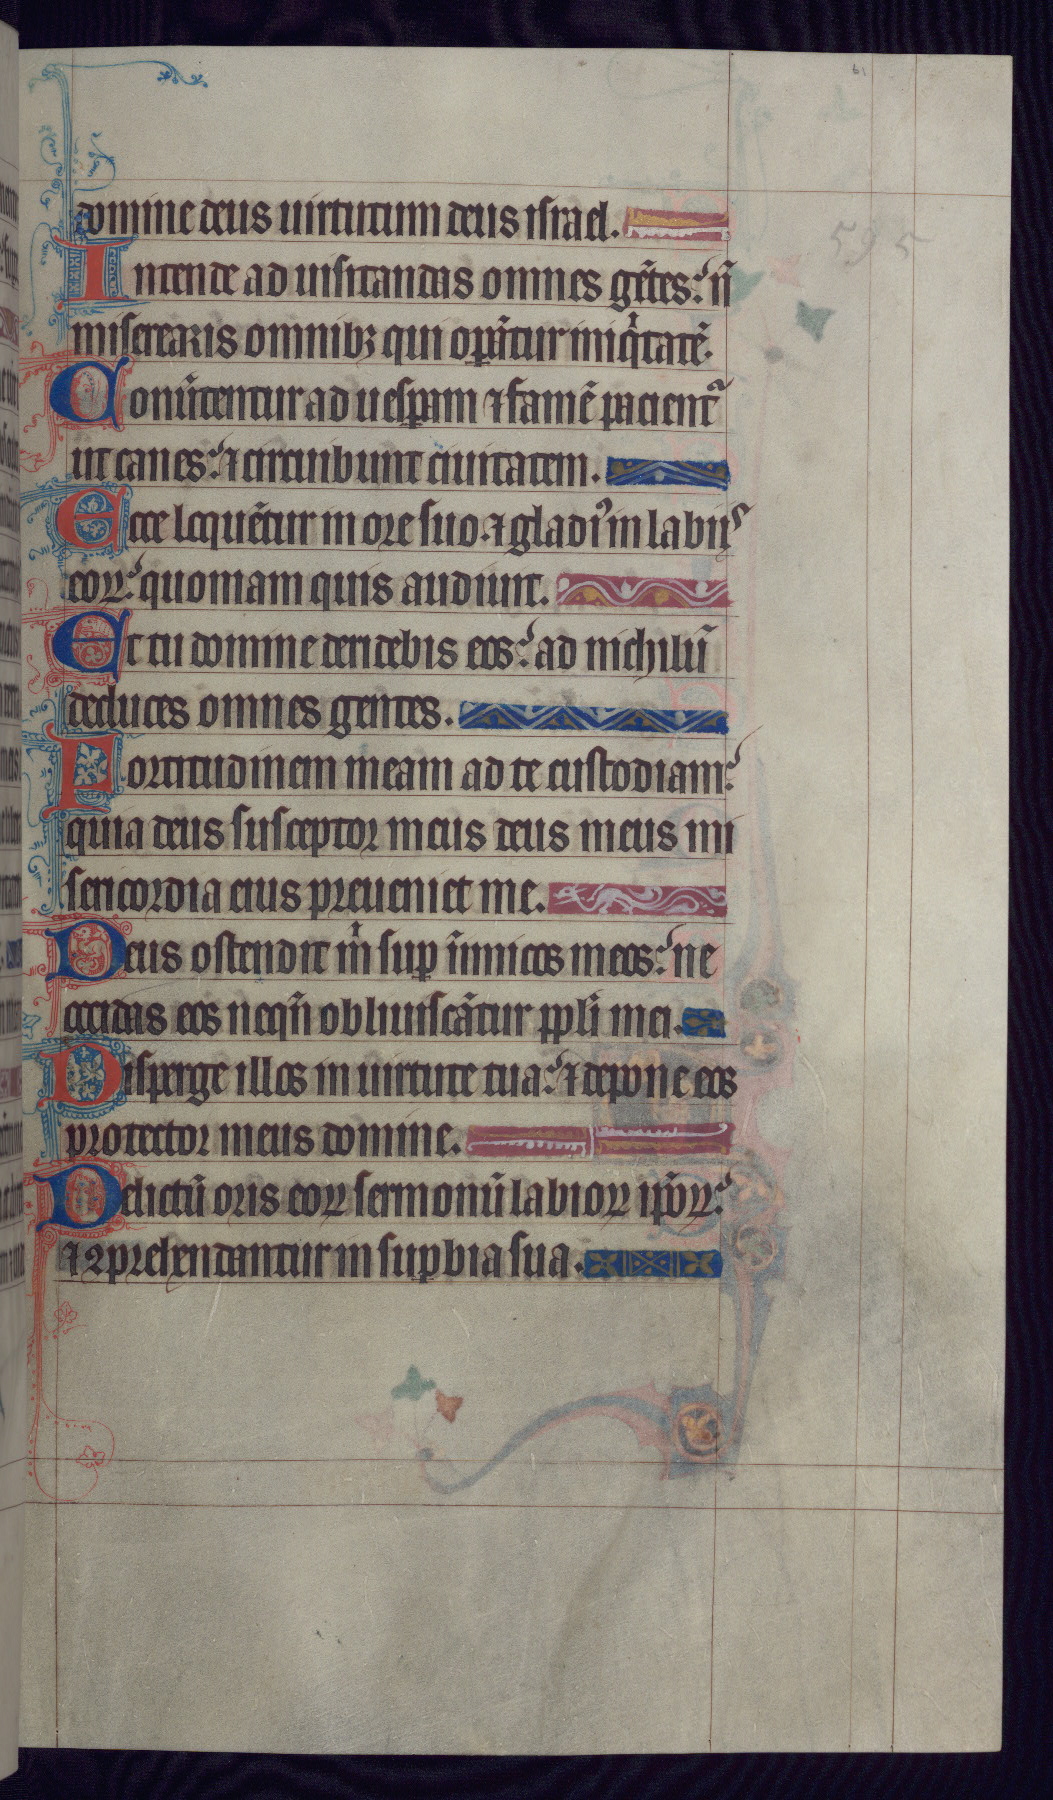 61
595
domine deus uirtutum deus israel.
Intende ad uisitandas omnes gētes: nō
miserearis omnibꝫ qui opātur iniqͥtatē.
Conuͥtentur ad uesꝑam ⁊ famē pacientᷓ
ut canes: ⁊ circuibunt ciuitatem.
Ecce loquētur in ore suo. ⁊ gladiꝰ in labiis
eoꝝ: quoniam quis audiuit.
Et tu domine deridebis eos: ad nichilū
deduces omnes gentes.
Fortitudinem meam ad te custodiam:
quia deus susceptor meus deus meus mi
sericordia eius preueniet me.
Deus ostendit mͥ suꝑ inimicos meos: ne
occidas eos neqn̄ obliuiscātur ppl̄i mei.
Disperge illos in uirtute tua: ⁊ depone eos
protector meus domine.
Delictū oris eoꝝ sermonū labioꝝ ip̄oꝝ:
⁊ ꝯprehendantur in suꝑbia sua.